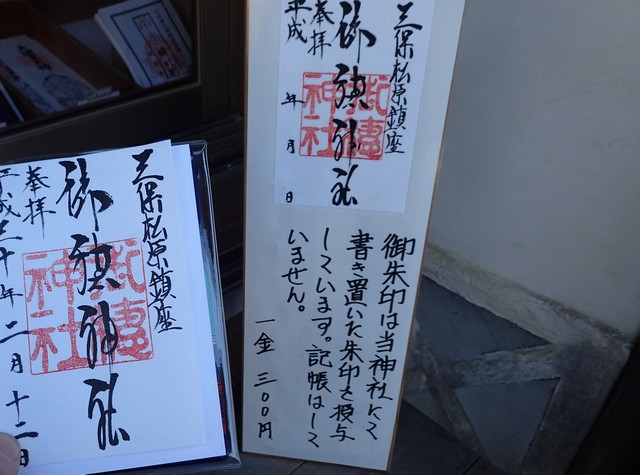 三保松原鎮座
御穂神社
奉拝
平成
年 月 日
御穂神社
御朱印は当神社にて
書き置いた朱印を授与
しています。記帳はして
いません。
一金 三〇〇円
三保松原鎮座
御穂神社
奉拝
平成三十年二月十二日
御穂神社